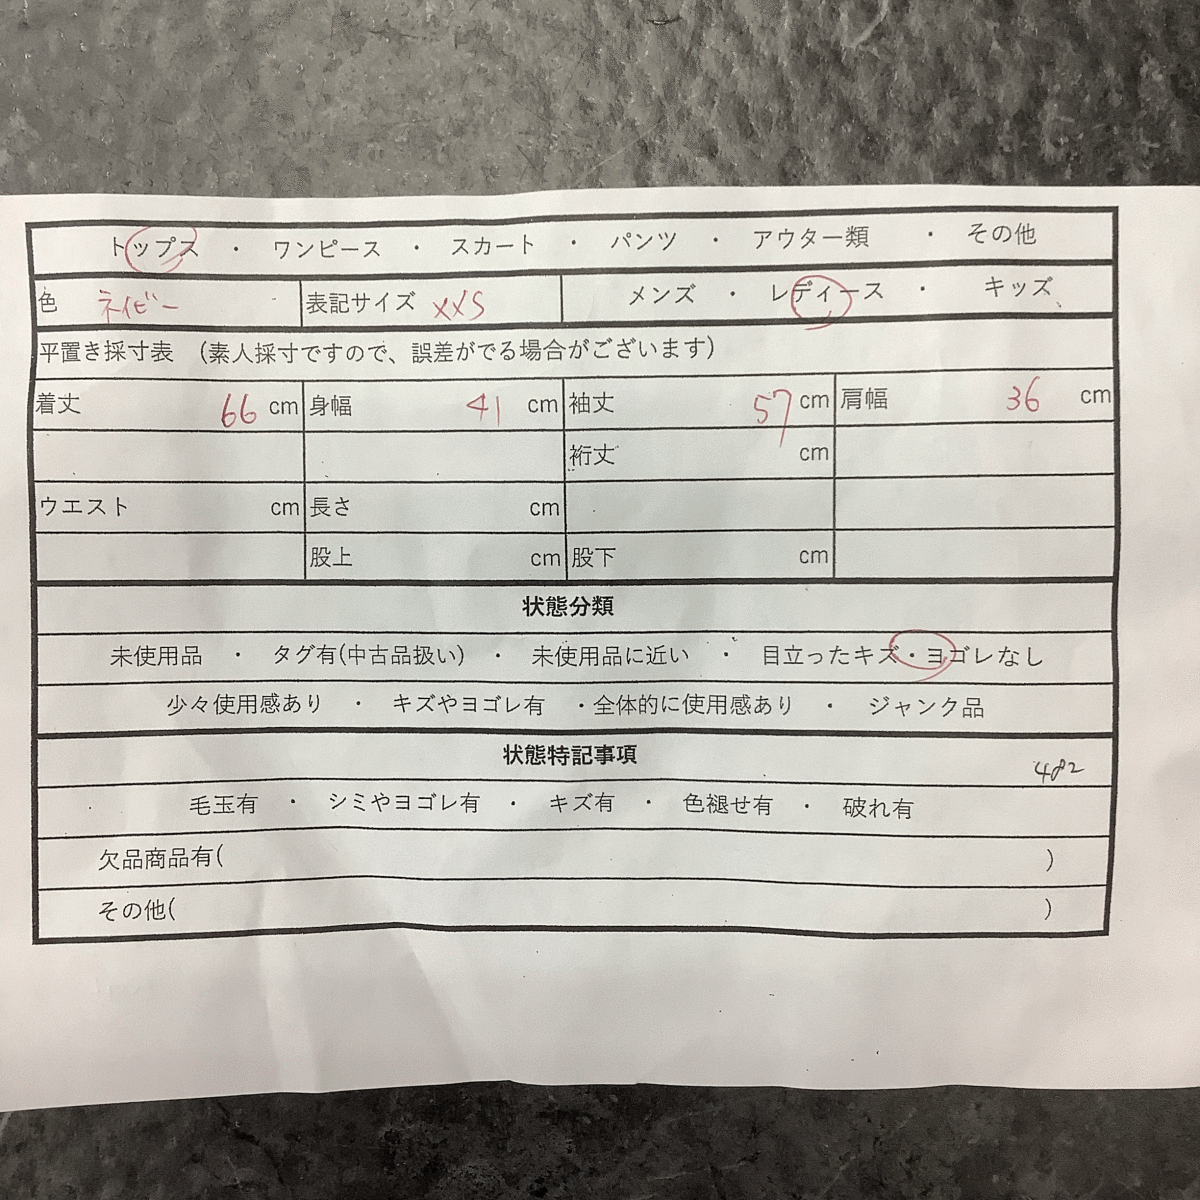 トップス ・ ワンピース ・ スカート ・ パンツ ・ アウター類 ・ その他
色 ネイビー 表記サイズ XXS メンズ ・ レディース ・ キッズ
平置き採寸表 (素人採寸ですので、誤差がでる場合がございます)
着丈 66 cm 身幅 41 cm 袖丈 57 cm 肩幅 36 cm
裄丈 cm
ウエスト cm 長さ cm
股上 cm 股下 cm
状態分類
未使用品 ・ タグ有(中古品扱い) ・ 未使用品に近い ・ 目立ったキズ・ヨゴレなし
少々使用感あり ・ キズやヨゴレ有 ・全体的に使用感あり ・ ジャンク品
状態特記事項
482
毛玉有 ・ シミやヨゴレ有 ・ キズ有 ・ 色褪せ有 ・ 破れ有
欠品商品有( )
その他( )